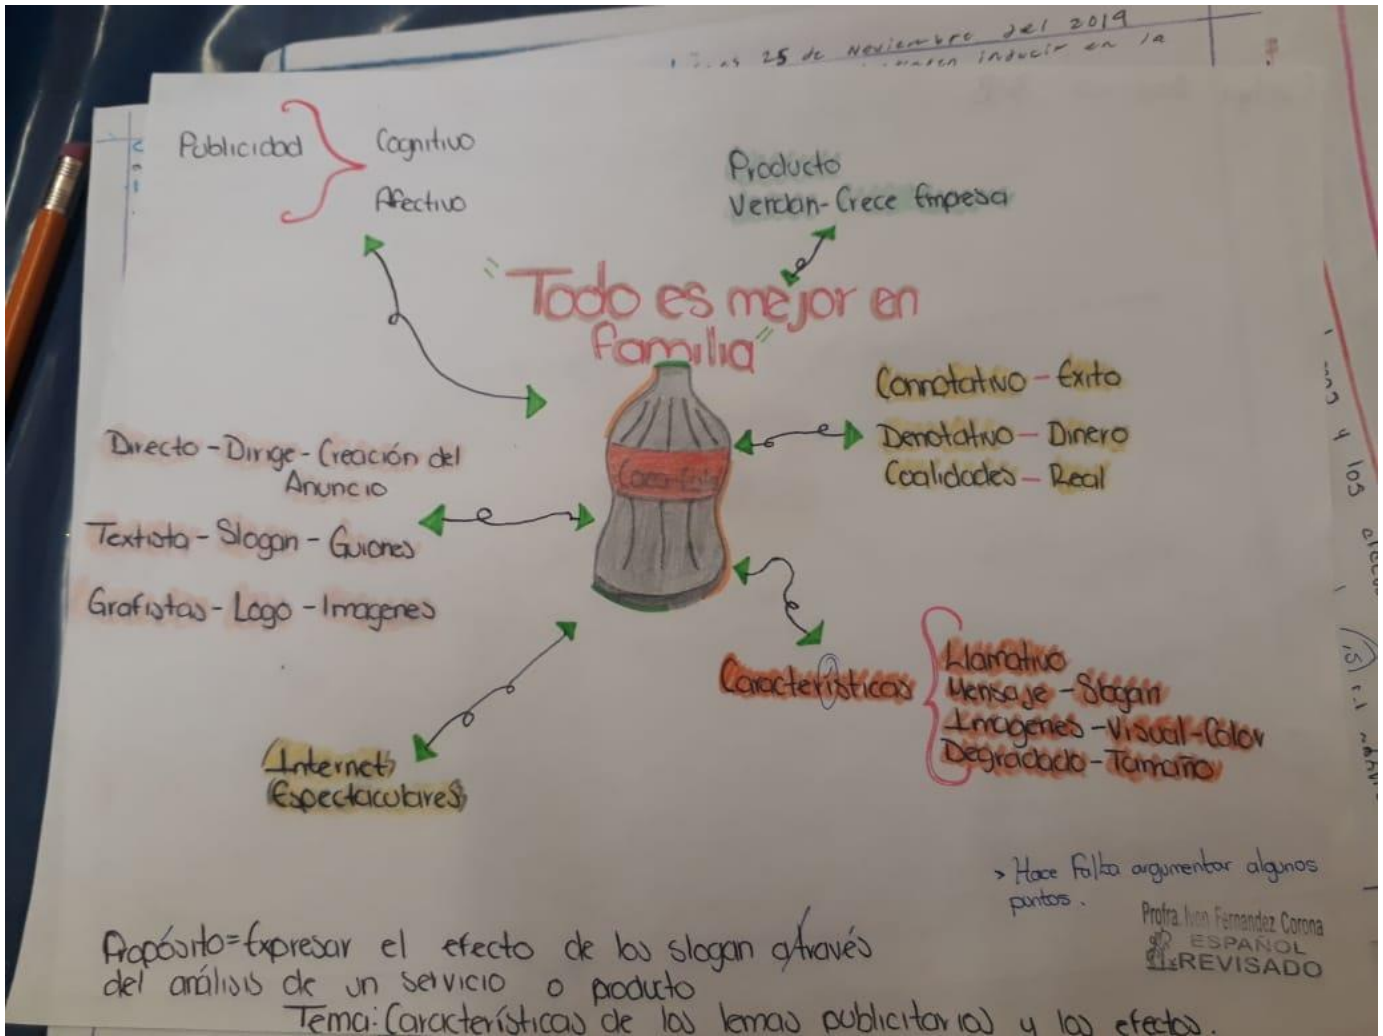 25 de Noviembre del 2019
inducir en la
Publicidad
Cognitivo
Afectivo
Producto
Vendan-Crece Empresa
"Todo es mejor en
familia"
Coca-Cola
Connotativo - Éxito
Denotativo - Dinero
Coalidades - Real
Directo - Dirige - Creación del
Anuncio
Textista - Slogan - Guiones
Grafistas - Logo - Imagenes
Características
Llamativo
Mensaje - Slogan
Imagenes - Visual - Color
Degradado - Tamaño
Internet
Espectaculares
> Hace Falta argumentar algunos
puntos.
Profra. Ivon Fernandez Corona
ESPAÑOL
REVISADO
Propósito = Expresar el efecto de los slogan a través
del análisis de un servicio o producto
Tema: Características de los lemas publicitarios y los efectos.
y los